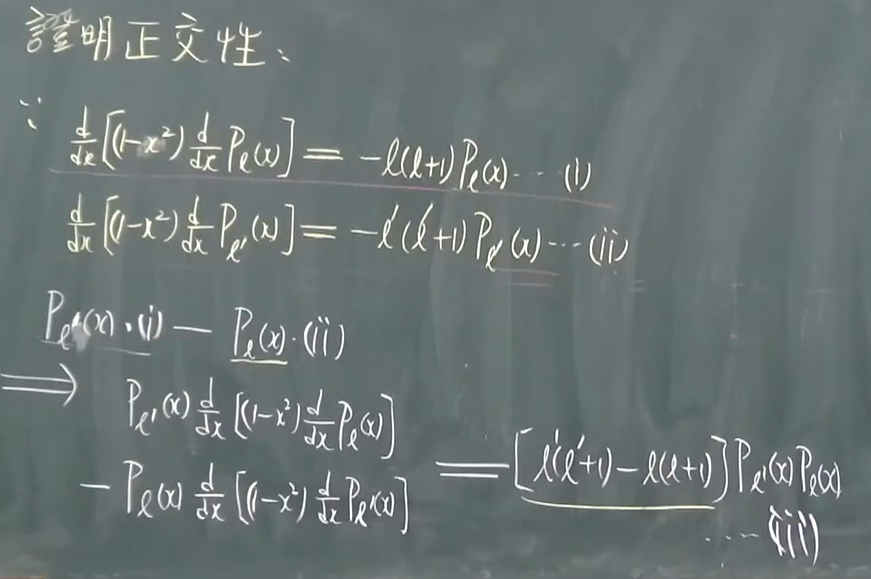 證明正交性:
∵
d/dx[(1-x²) d/dx Pℓ(x)] = -ℓ(ℓ+1)Pℓ(x)⋯(i)
d/dx[(1-x²) d/dx Pℓ'(x)] = -ℓ'(ℓ'+1)Pℓ'(x)⋯(ii)
Pℓ'(x)·(i) — Pℓ(x)·(ii)
⟹ Pℓ'(x) d/dx[(1-x²) d/dx Pℓ(x)]
- Pℓ(x) d/dx[(1-x²) d/dx Pℓ'(x)] = [ℓ'(ℓ'+1)-ℓ(ℓ+1)]Pℓ'(x)Pℓ(x)
⋯(iii)